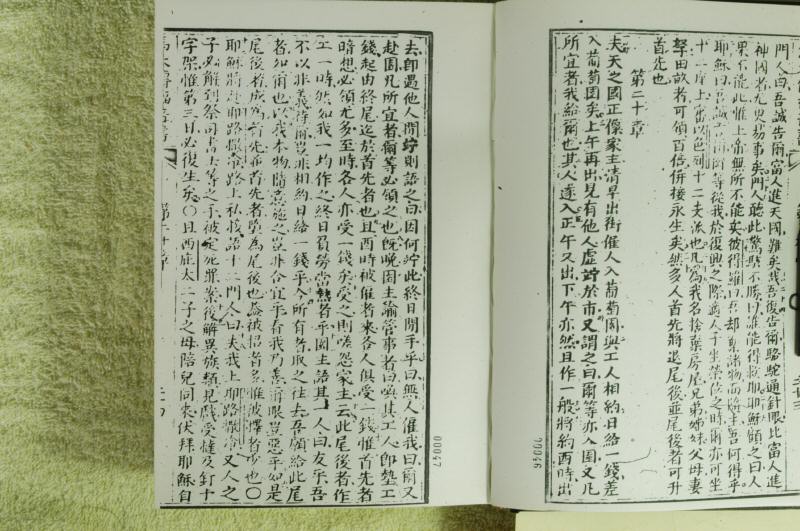 門人曰吾誠告爾富人進天國難矣哉吾復告爾駱駝通針眼比富人進
神國者尤更易事矣門人聽此驚駭不勝曰誰能得救耶耶穌顧之曰人
果不能此惟上帝無所不能矣彼得
耶穌曰吾誠告爾等從我於復興之際遇人子坐榮位之時爾亦可坐
十二座上審以色列十二支派也凡為我名捨棄房屋兄弟姊妹父母妻
孥田畝者可領百倍併接永生矣然多人首先將退尾後並尾後者可升
首先也
第二十章
夫天之國正像家主清早出街催人入葡萄園與工人相約日給一錢差
入葡萄園矣上午再出見有他人虛竚於市又謂之曰爾等亦入園又凡
所宜者我給爾也其人遂入正午又出下午亦然且作一般將約酉時出
00046
去即遇他人閒竚則語之曰因何竚此終日閒手乎曰無人催我曰爾又
赴園凡所宜者爾等必領之也既晚園主諭管事者曰喚其工人即墊工
錢起由終尾迄於首先者也且酉時被催者來各人俱受一錢惟首先者
暗想必領尤多至時各人亦受一錢矣受之則嗟怨家主云此尾後者作
工一時然如我一均作之終日負勞當熱者乎園主語其一人曰友乎吾
不以非義待爾豈非相約日給一錢乎今所有者取之往去吾願給此尾
者如爾也以我本物隨意施之豈非合宜乎看我乃善爾眼豈惡乎如是
尾後者成為首先並首先者墜為尾後也蓋被招者多惟被擇者少也〇
耶穌將進耶路撒冷路上私接語十二門人曰夫我上耶路撒冷又人之
子必解到祭司書士等之手被定死罪案後解異族類見戲受撻及釘十
字架惟第三日必復生矣〇且西庇太二子之母陪兒同來伏拜耶穌自
第二十章
00047